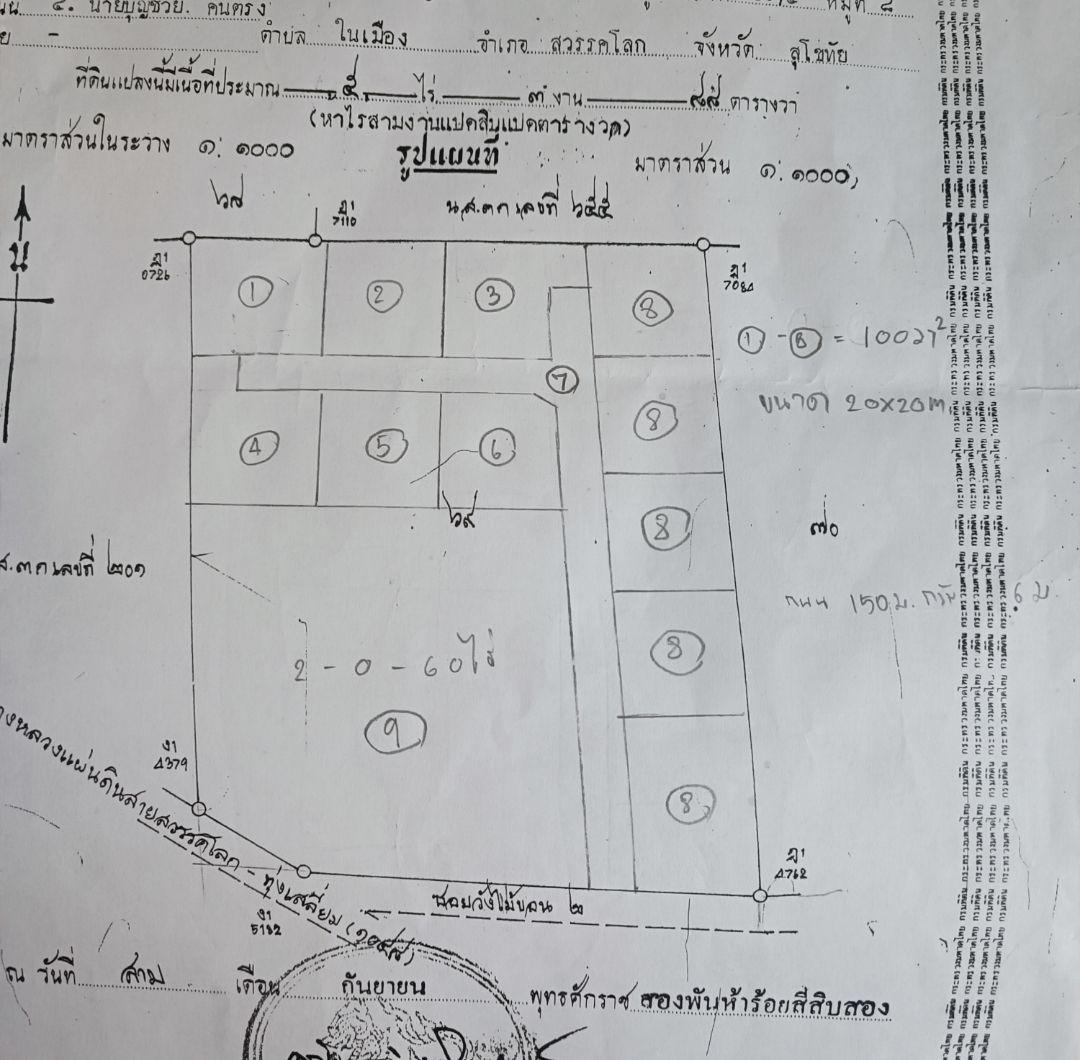 ๔. นายบุญช่วย คนตรง หมู่ที่ ๘
- ตำบล ในเมือง อำเภอ สวรรคโลก จังหวัด สุโขทัย
ที่ดินแปลงนี้มีเนื้อที่ประมาณ ๕ ไร่ ๓ งาน ๘๘ ตารางวา
(ห้าไร่สามงานแปดสิบแปดตารางวา)
มาตราส่วนในระวาง ๑: ๑๐๐๐ รูปแผนที่ มาตราส่วน ๑: ๑๐๐๐
๖๘ น.ส.๓ก เลขที่ ๖๕๕
7110
0726
7084
น
① ② ③ 8
① - ⑧ = 100ว²
⑦
ขนาด 20x20m.
④ ⑤ ⑥ 8
๖๙
8
๗๐
ส.๓ก เลขที่ ๒๐๑
ถนน 150 ม. กว้าง 6 ม
2 - 0 - 60 ไร่
8
⑨
4379
8
ทางหลวงแผ่นดินสายสวรรคโลก - ทุ่งเสลี่ยม
4762
5182
ซอยวังไม้ขอน ๒
ณ วันที่ สาม เดือน กันยายน พุทธศักราช สองพันห้าร้อยสี่สิบสอง